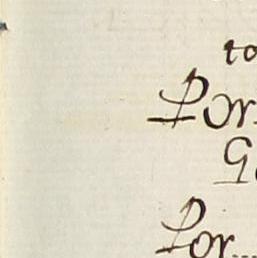 to
Por
G
Por...